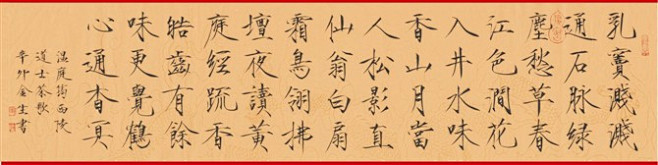 乳竇濺濺
通石脉綠
塵愁草春
江色澗花
入井水味
香山月當
人松影直
仙翁白扇
霜鳥翎拂
壇夜讀黃
庭經疏香
皓齒有餘
味更覺鶴
心通杳冥
温庭筠西陵
道士茶歌
辛卯金生書